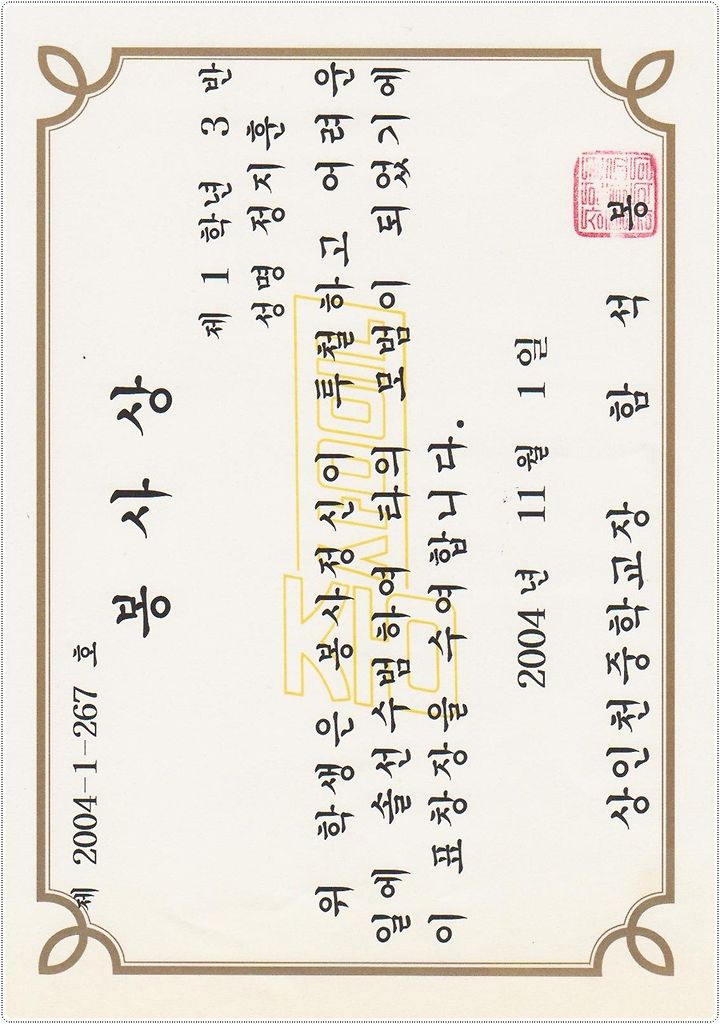 제 2004-1-267 호
봉 사 상
제 1 학년 3 반
성명 정지훈
위 학생은 봉사정신이 투철하고 어려운
일에 솔선수범하여 타의 모범이 되었기에
이 표창장을 수여합니다.
2004 년 11 월 1 일
상인천중학교장 함 석 봉